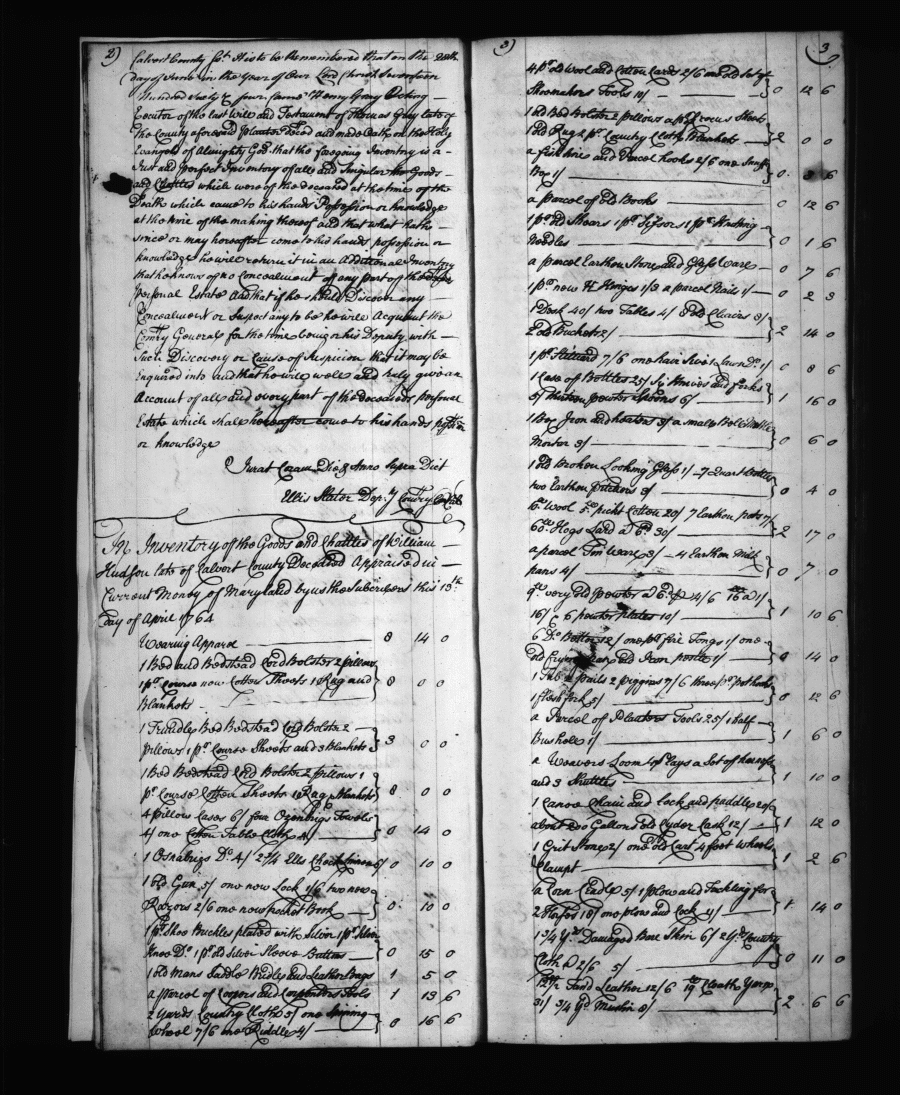 2)
Calvert County Sct. It is to be Remembered that on the 20th
day of June in the Year of Our Lord Christ Seventeen
Hundred Sixty & four Came Henry Gray Acting
Executor of the last Will and Testament of Thomas Gray late of
the County aforesaid Planter Deced and made Oath on the Holy
Evangels of Almighty God that the foregoing Inventory is a
Just and perfect Inventory of all and Singular the Goods
and Chattles which were of the deceased at the time of the
Death which came to his hands Possession or knowledge
at the time of the making thereof and that what hath
since or may hereafter come to his hands possession or
knowledge he will return it in an Additional Inventory
that he knows of no Concealment of any part of the
personal Estate And that if he shall Discover any
Concealment or Suspect any to be he will Acquaint the
Comry General for the time being or his Deputy with
Such Discovery or Cause of Suspicion that it may be
Enquired into and that he will well and truly give an
Account of all and every part of the deceaseds personal
Estate which shall hereafter come to his hands possession
or knowledge
Jurat Coram Die & Anno Supra Dict
Ellis Slater Dep. Comry
An Inventory of the Goods and Chattles of William
Hudson late of Calvert County Deceased Appraised in
Current Money of Maryland by us the Subscribers this 13th
day of April 1764
Wearing Apparel 8 14 0
1 Bed and Bedstead Cord Bolster 2 pillows
1 pr Course new Cotten Sheets 1 Rug and 8 0 0
Blankets
1 Trundle Bed Bedstead Cord Bolster 2
pillows 1 pr. Course Sheets and 3 Blankets 3 0 0
1 Bed Bedstead Cord Bolster 2 pillows 1
pr Course Cotten Sheets 1 Rug Blankets 8 0 0
4 pillow Cases 6/ four Ozenbrigs Towels
4/ one Cotton Table Cloth 0 14 0
1 Osnabrigs Do 4/ 2 3/4 Ells 0 10 0
1 old Gun 5/ one new Lock 1/6 two new
Razors 2/6 one new pocket Book 0 10 0
1 pr Shoe Buckles plated with Silver 1 pr
Knee Do 1 pr old Silver Sleeve Buttons 0 15 0
1 old Mans Saddle Bridle and Leather Bags 1 5 0
a parcel of Coopers and Carpenters Tools 1 13 6
2 Yards Country Cloth 5/ one Spining
Wheel 7/6 one Riddle 4/ 0 16 6
3) 3
4 pr old Wool and Cotton Cards 2/6 one old Set of
Shoemakers Tools 10/ 0 12 6
1 Old Bed Bolster 2 pillows a pr Sheets
1 Old Rug 2 pr Country Cloth Blankets 2 0 0
a fish line and Parcel Hooks 2/6 one Snuff
Box 1/ 0 3 6
a parcel of Old Books 0 12 6
1 pr old Shears 1 pr Scissors 1 pr Knitting
Needles 0 1 6
a parcel Earthen Stone and Glass Ware 0 7 6
1 pr new H Hinges 1/3 a parcel Nails 1/ 0 2 3
1 Desk 40/ two Tables 4/ 8 old Chairs 8/
2 old Buckets 2/ 2 14 0
1 pr Stiliard 7/6 one hair Sive 1 Lawn Do 1/ 0 8 6
1 Case of Bottles 25/ Six Knives and forks
5/ thirteen pewter Spoons 6/ 1 16 0
1 Box Iron and heaters 3/ a small Bell Mettle
Mortar 3/ 0 6 0
1 Old Broken Looking Glass 1/ 7 Quart Bottles
two Earthen pitchers 3/ 0 4 0
lb Wool 5 lb pickt Cotton 20/ 7 Earthen pots 7/
60 lb Hogs Lard a 6d 30/ 2 17 0
a parcel Tin Ware 3/ 4 Earthen Milk
pans 4/ 0 7 0
very old pewter a 6d 4/6 16 lb a 1/
16/ 6 pewter plates 10/ 1 10 6
6 Do 12/ one pr fire Tongs 1/ one
old frying pan and Iron pestle 1/ 0 14 0
1 Tub 2 pails 2 piggins 7/6 three pr pothooks
1 flesh fork 5/ 0 12 6
a Parcel of Planters Tools 25/ 1 half
Bushell 1/ 1 6 0
a Weavers Loom Slays a Set of harness
and 3 Shuttles 1 10 0
1 Canoe Chain and lock and paddle 20/
about 200 Gallons old Cyder Cask 12/ 1 12 0
1 Grit Stone 2/ one old Cart 4 foot Wheels
1 2 6
a Corn Cradle 5/ 1 plow and Tackling for
2 Horses 18/ one plow and lock 1 14 0
1 3/4 Yds Damaged Bear Skin 6/ 2 Yds Country
Cloth a 2/6 5/ 0 11 0
12 1/2 Tand Leather 12/6
3/4 Yd Muslin 2 6 6